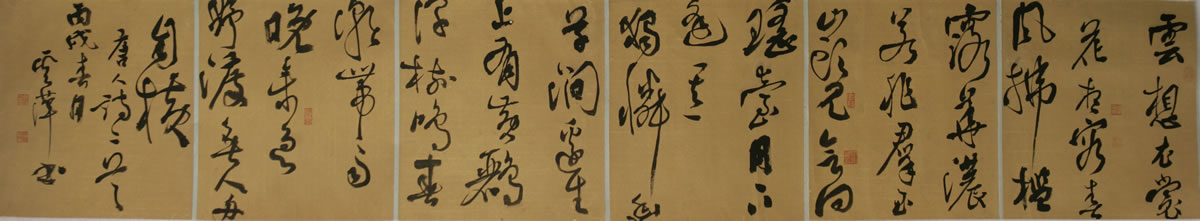 雲想衣裳
花想容春
風拂檻
露華濃
若非群玉
山頭見會向
瑤臺月下
逢 其一
獨憐幽
草澗邊生
上有黃鸝
深樹鳴春
潮帶雨
晚來急
野渡無人舟
自橫
唐人詩二首
丙戌春月
書